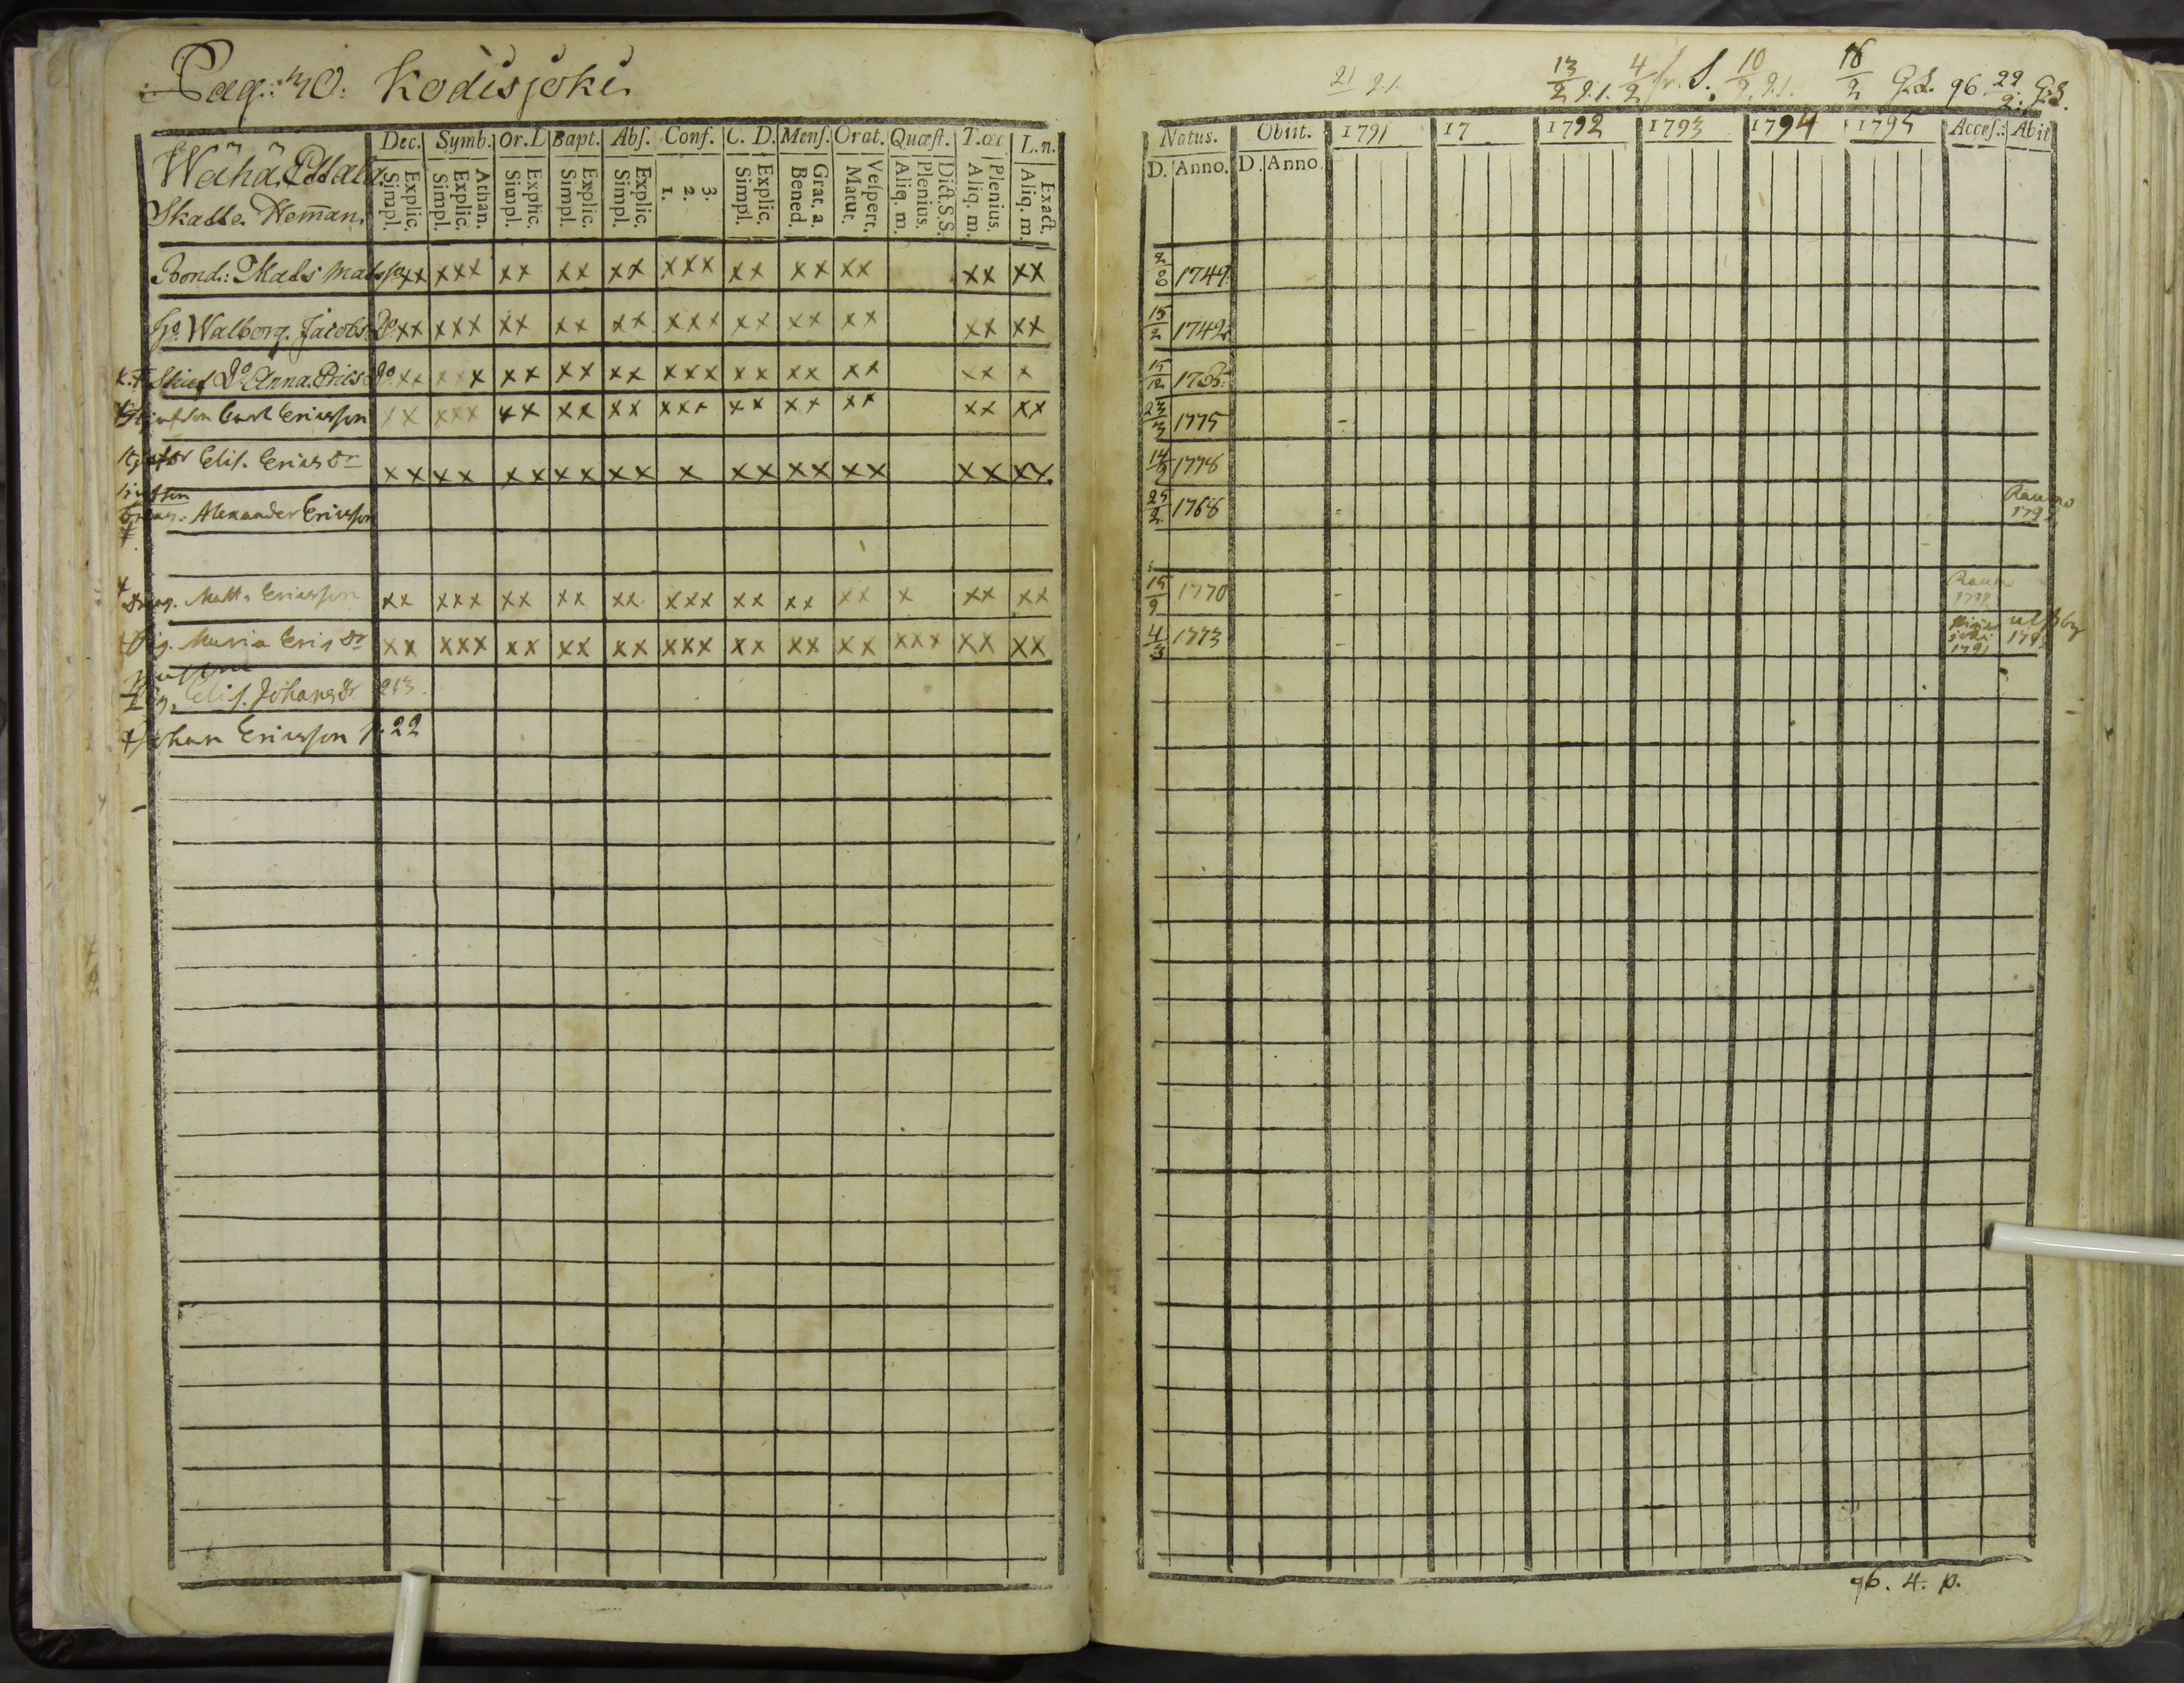 Pag: 30: Kodisjoki
Dec. Symb. Or. D. Bapt. Abs. Conf. C. D. Mens. Orat. Quæst. T. œc L. n.
Wähä
Skatte Heman.
Simpl. Explic. Simpl. Explic. Athan. Simpl. Explic. Simpl. Explic. Simpl. Explic. 1. 2. 3. Simpl. Explic. Bened. Grat. a. Matut. Vespert. Aliq. m. Plenius. Dict. S. S. Aliq. m. Plenius. Aliq. m. Exact.
Bond: Mats Matsson xx xxx xx xx xx xxx xx xx xx xx xx
Hu Walborg. Jacobs Do xx xxx xx xx xx xxx xx xx xx xx xx
Anna Erics Do xx xxx xx xx xx xxx xx xx xx xx x
Carl Ericsson xx xxx xx xx xx xxx xx xx xx xx xx
Elis. Erics Dr xx xx xx xx xx x xx xx xx xx xx
Dreng: Alexander Ericsson
Dreng. Matts Ericsson xx xxx xx xx xx xxx xx xx xx x xx xx
Pig. Maria Erics Dr xx xxx xx xx xx xxx xx xx xx xxx xx xx
Pig. Elis. Johans Dr 213
Johan Ericsson p. 22
21 13/2 4/2 S. 10/2 18/2 G.S. 96 22/2 G.S.
Natus. Obiit. 1791 17 1792 1793 1794 1795 Acces. Abit
D. Anno. D. Anno.
1749
15/2 1742
15/12
1775
14/2 1778
25/2 1768 Raumo
15/9 1770 Raumo
4/3 1773 joki 1791 Ulfsby
96. 4. p.